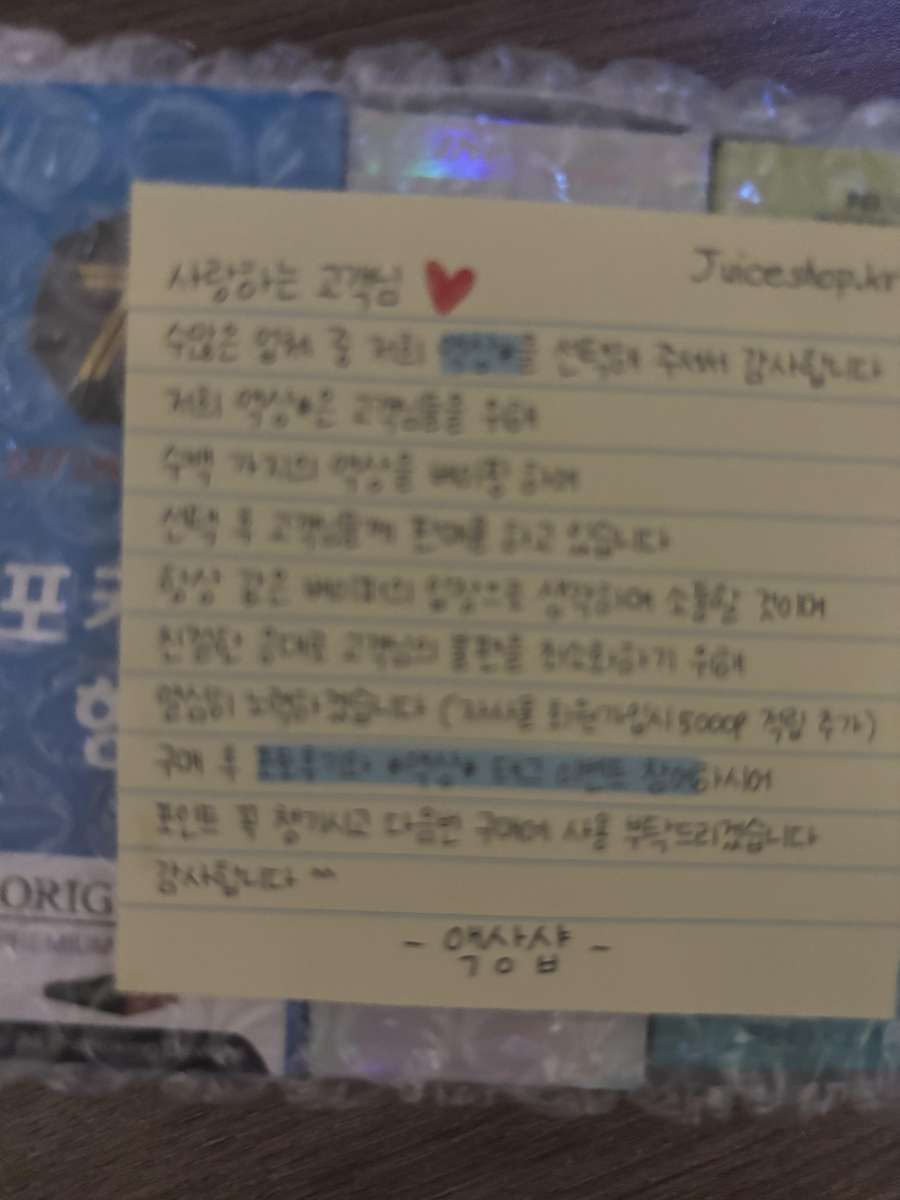 Juiceshop.kr
사랑하는 고객님
수많은 업체 중 저희 액상샵을 선택해 주셔서 감사합니다
저희 액상샵은 고객님들을 위해
수백 가지의 액상을 베이핑 하여
선택 후 고객님들께 판매를 하고 있습니다
항상 같은 베이퍼의 입장으로 생각하며 소통할 것이며
친절한 응대로 고객님의 불편을 최소화하기 위해
열심히 노력하겠습니다 (자사몰 회원가입시 5000P 적립 추가)
구매 후 이벤트 참여하시어
포인트 꼭 챙기시고 다음번 구매에 사용 부탁드리겠습니다
감사합니다 ^^
- 액상샵 -
포
ORIG
PREMIUM